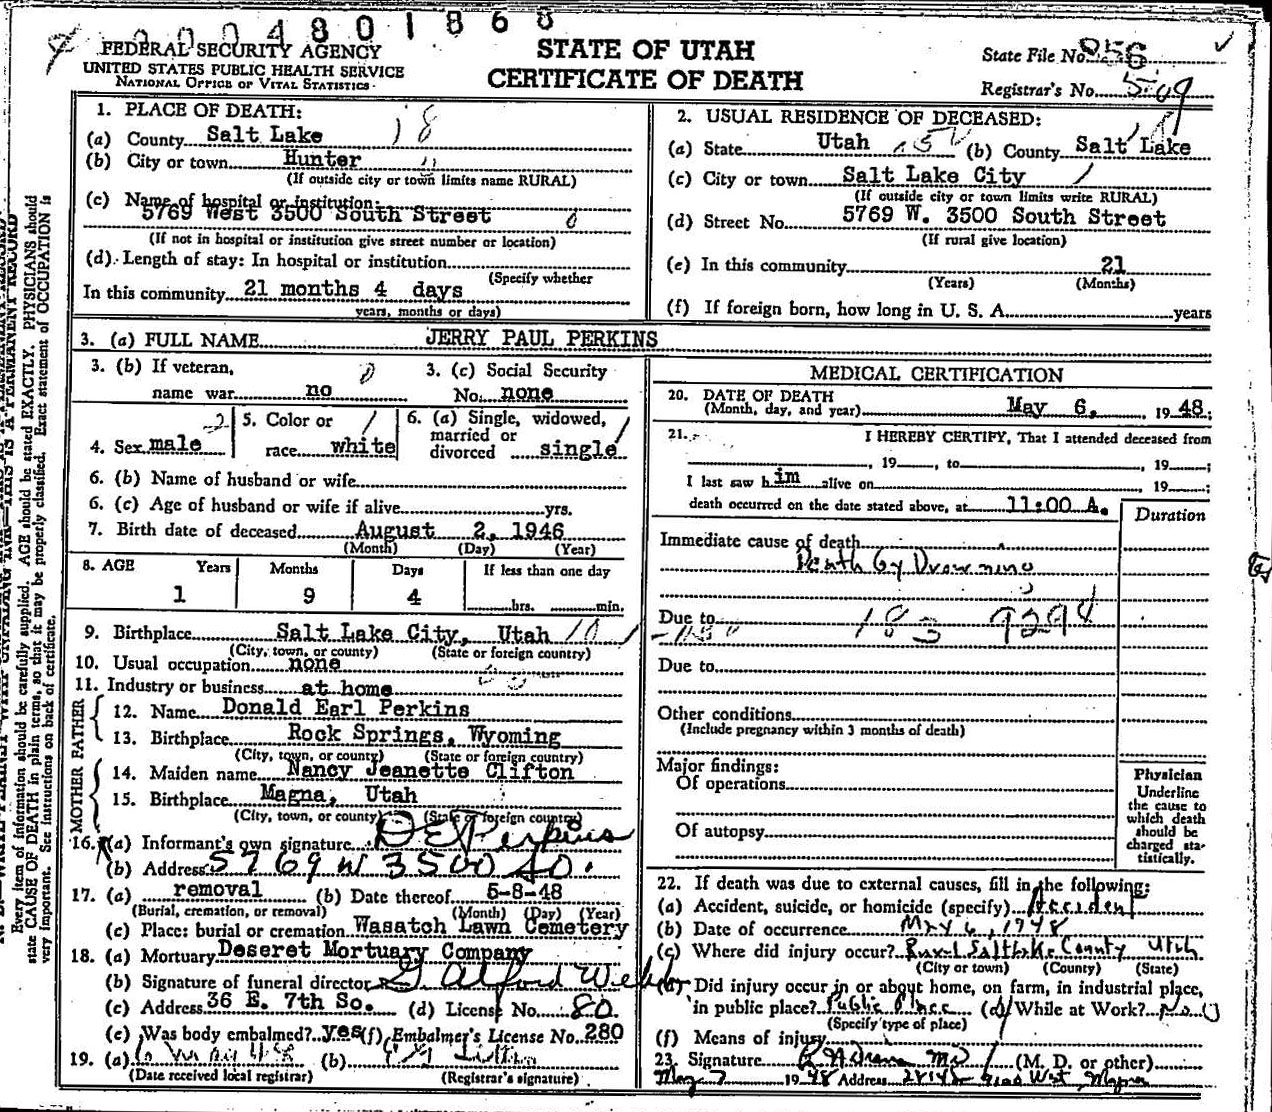 0004801868
FEDERAL SECURITY AGENCY
UNITED STATES PUBLIC HEALTH SERVICE
NATIONAL OFFICE OF VITAL STATISTICS
STATE OF UTAH
CERTIFICATE OF DEATH
State File No. 856
Registrar's No. 509
1. PLACE OF DEATH:
(a) County Salt Lake 18
(b) City or town Hunter
(If outside city or town limits name RURAL)
(c) Name of hospital or institution:
5769 West 3500 South Street 0
(If not in hospital or institution give street number or location)
(d) Length of stay: In hospital or institution
(Specify whether
In this community 21 months 4 days
years, months or days)
2. USUAL RESIDENCE OF DECEASED:
(a) State Utah (b) County Salt Lake
(c) City or town Salt Lake City
(If outside city or town limits write RURAL)
(d) Street No. 5769 W. 3500 South Street
(If rural give location)
(e) In this community 21
(Years) (Months)
(f) If foreign born, how long in U. S. A. years
3. (a) FULL NAME JERRY PAUL PERKINS
3. (b) If veteran,
name war no
3. (c) Social Security
No. none
4. Sex male
5. Color or
race white
6. (a) Single, widowed,
married or
divorced single
6. (b) Name of husband or wife
6. (c) Age of husband or wife if alive yrs.
7. Birth date of deceased August 2, 1946
(Month) (Day) (Year)
8. AGE Years Months Days If less than one day
1 9 4 hrs. min.
9. Birthplace Salt Lake City, Utah
(City, town, or county) (State or foreign country)
10. Usual occupation none
11. Industry or business at home
FATHER
12. Name Donald Earl Perkins
13. Birthplace Rock Springs, Wyoming
(City, town, or county) (State or foreign country)
MOTHER
14. Maiden name Nancy Jeanette Clifton
15. Birthplace Magna, Utah
(City, town, or county) (State or foreign country)
16. (a) Informant's own signature D E Perkins
(b) Address 5769 W 3500 So.
17. (a) removal (b) Date thereof 5-8-48
(Burial, cremation, or removal) (Month) (Day) (Year)
(c) Place: burial or cremation Wasatch Lawn Cemetery
18. (a) Mortuary Deseret Mortuary Company
(b) Signature of funeral director G Alford Webb
(c) Address 36 E. 7th So. (d) License No. 80
(e) Was body embalmed? yes (f) Embalmer's License No. 280
19. (a) (b)
(Date received local registrar) (Registrar's signature)
MEDICAL CERTIFICATION
20. DATE OF DEATH
(Month, day, and year) May 6, 1948;
21. I HEREBY CERTIFY, That I attended deceased from
, 19 , to , 19 ;
I last saw him alive on , 19 ;
death occurred on the date stated above, at 11:00 A.
Duration
Immediate cause of death
Death by Drowning
Due to 183 9294
Due to
Other conditions
(Include pregnancy within 3 months of death)
Major findings:
Of operations
Of autopsy
Physician
Underline
the cause to
which death
should be
charged sta-
tistically.
22. If death was due to external causes, fill in the following:
(a) Accident, suicide, or homicide (specify) Accident
(b) Date of occurrence May 6, 1948
(c) Where did injury occur? Rural Salt Lake County Utah
(City or town) (County) (State)
(d) Did injury occur in or about home, on farm, in industrial place,
in public place? Public Place (e) While at Work? No
(Specify type of place)
(f) Means of injury
23. Signature (M. D. or other)
May 7 1948 Address
Every item of information should be carefully supplied. AGE should be stated EXACTLY. PHYSICIANS should
state CAUSE OF DEATH in plain terms, so that it may be properly classified. Exact statement of OCCUPATION is
very important. See instructions on back of certificate.